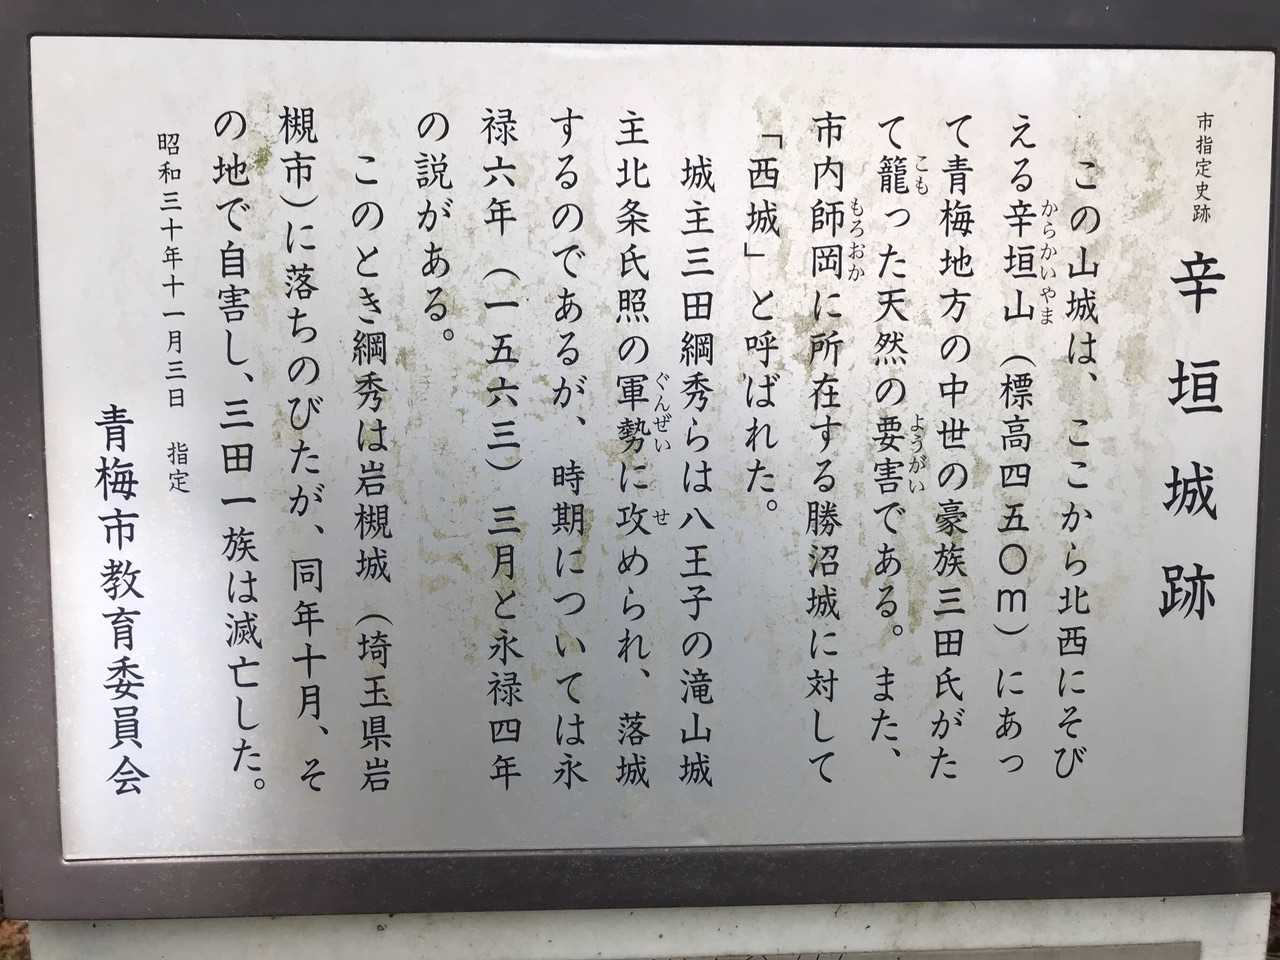 市指定史跡 辛垣城跡
この山城は、ここから北西にそび
える辛垣山（標高四五〇m）にあっ
からかいやま
て青梅地方の中世の豪族三田氏がた
て籠った天然の要害である。また、
こも ようがい
市内師岡に所在する勝沼城に対して
もろおか
「西城」と呼ばれた。
城主三田綱秀らは八王子の滝山城
主北条氏照の軍勢に攻められ、落城
ぐんぜい せ
するのであるが、時期については永
禄六年（一五六三）三月と永禄四年
の説がある。
このとき綱秀は岩槻城（埼玉県岩
槻市）に落ちのびたが、同年十月、そ
の地で自害し、三田一族は滅亡した。
昭和三十年十一月三日 指定
青梅市教育委員会